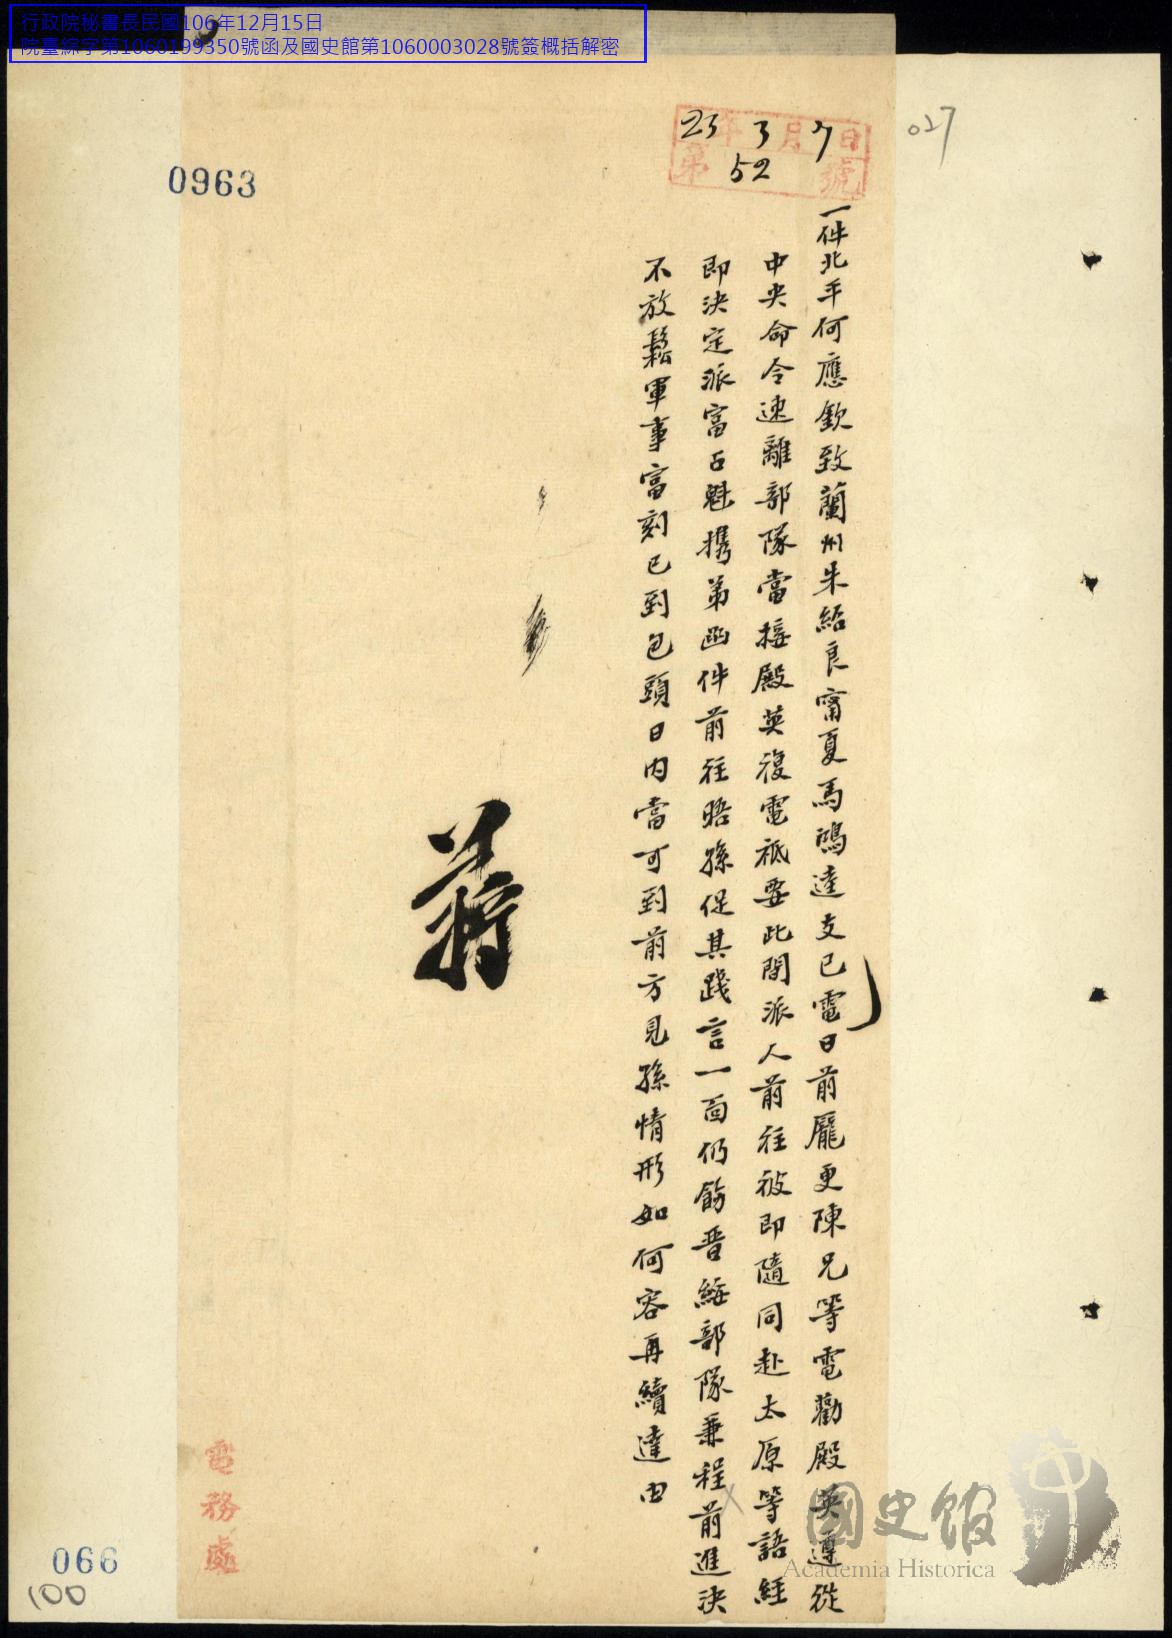 行政院秘書長民國106年12月15日
院臺綜字第1060199350號函及國史館第1060003028號簽概括解密
027
23年3月7日
第52號
0963
一件北平何應欽致蘭州朱紹良甯夏馬鴻逵支已電日前龎更陳兄等電勸殿英遵從
中央命令速離部隊當接殿英復電祗要此間派人前往彼即隨同赴太原等語經
即決定派富占魁携弟函件前往晤孫促其踐言一面仍飭晋綏部隊兼程前進決
不放鬆軍事富刻已到包頭日內當可到前方見孫情形如何容再續達由
蔣
電務處
066
100
國史館
Academia Historica